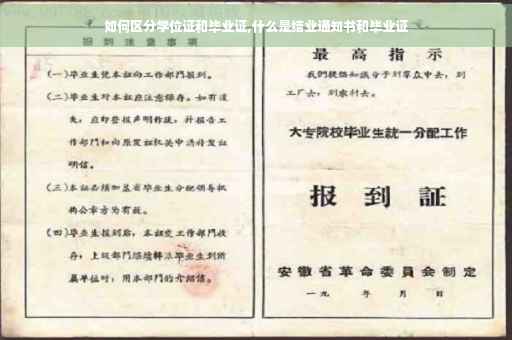 如何区分学位证和毕业证,什么是结业通知书和毕业证
报到注意事项
(一)毕业生凭本证向工作部门报到。
(二)毕业生对本证应注意保存。如有遗
失,应即登报声明作废,并报告工
作部门和向原发证机关申请补发证
明信。
(三)本证必须加盖省毕业生分配领导机
构公章方为有效。
(四)毕业生报到后,本证交工作部门收
存,上级部门
属单位时,用本部门的介绍信。
最高指示
我们提倡知识分子到群众中去,到
工厂去,到农村去。
大专院校毕业生統一分配工作
报到証
安徽省革命委員会制定
一九 年 月 日